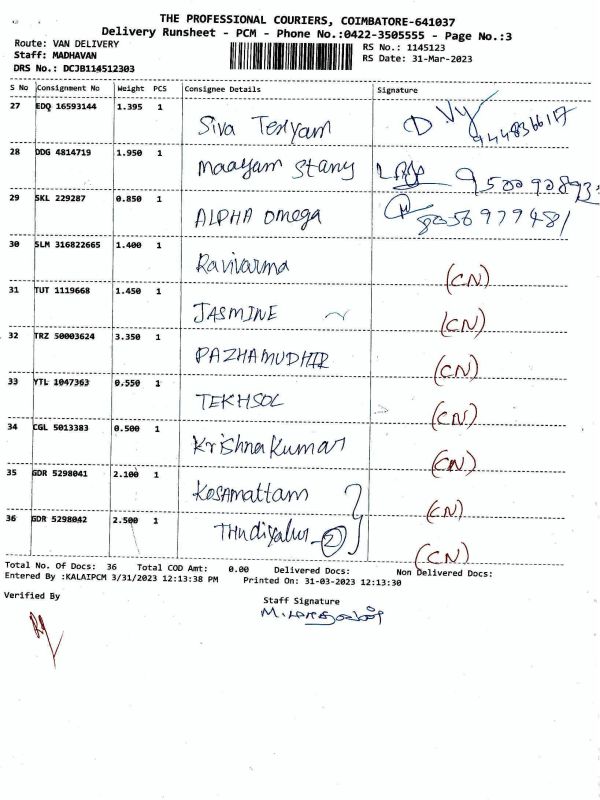 THE PROFESSIONAL COURIERS, COIMBATORE-641037
Delivery Runsheet - PCM - Phone No.:0422-3505555 - Page No.:3
Route: VAN DELIVERY
RS No.: 1145123
Staff: MADHAVAN
RS Date: 31-Mar-2023
DRS No.: DCJB114512303
S No Consignment No Weight PCS Consignee Details Signature
27 EDQ 16593144 1.395 1 Siva
28 DDG 4814719 1.950 1 Maayam Stany
29 SKL 229287 0.850 1 ALPHA Omega 8056977481
30 SLM 316822665 1.400 1 Ravivarma (CN)
31 TUT 1119668 1.450 1 JASMINE (CN)
32 TRZ 50003624 3.350 1 PAZHAMUDHIR (CN)
33 YTL 1047363 0.550 1 TEKHSOL (CN)
34 CGL 5013383 0.500 1 Krishna Kumar (CN)
35 GDR 5298041 2.100 1 Kosamattam (CN)
36 GDR 5298042 2.500 1 Thudiyalur 2 (CN)
Total No. Of Docs: 36 Total COD Amt: 0.00 Delivered Docs: Non Delivered Docs:
Entered By :KALAIPCM 3/31/2023 12:13:38 PM Printed On: 31-03-2023 12:13:30
Verified By
Staff Signature